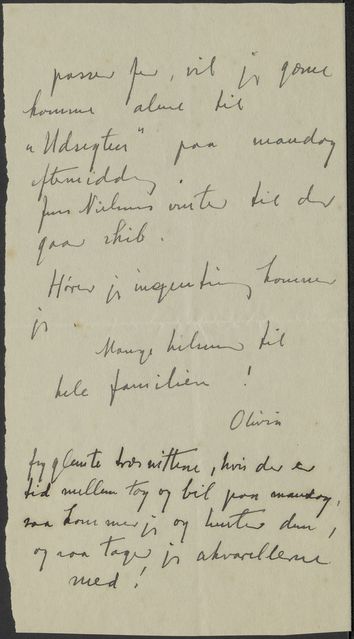 passer for, vil jeg gærne
komme alene til
"Udsigten" paa mandag
eftermiddag
fru Nielsens venter til der
gaar skib.
Hører jeg ingenting kommer
jeg
Mange hilsner til
hele familien!
Olivia
Jeg glemte træsnittene, hvis der er
tid mellem tog og bil paa mandag,
saa kommer jeg og henter dem,
og saa tager jeg akvarellerne
med!